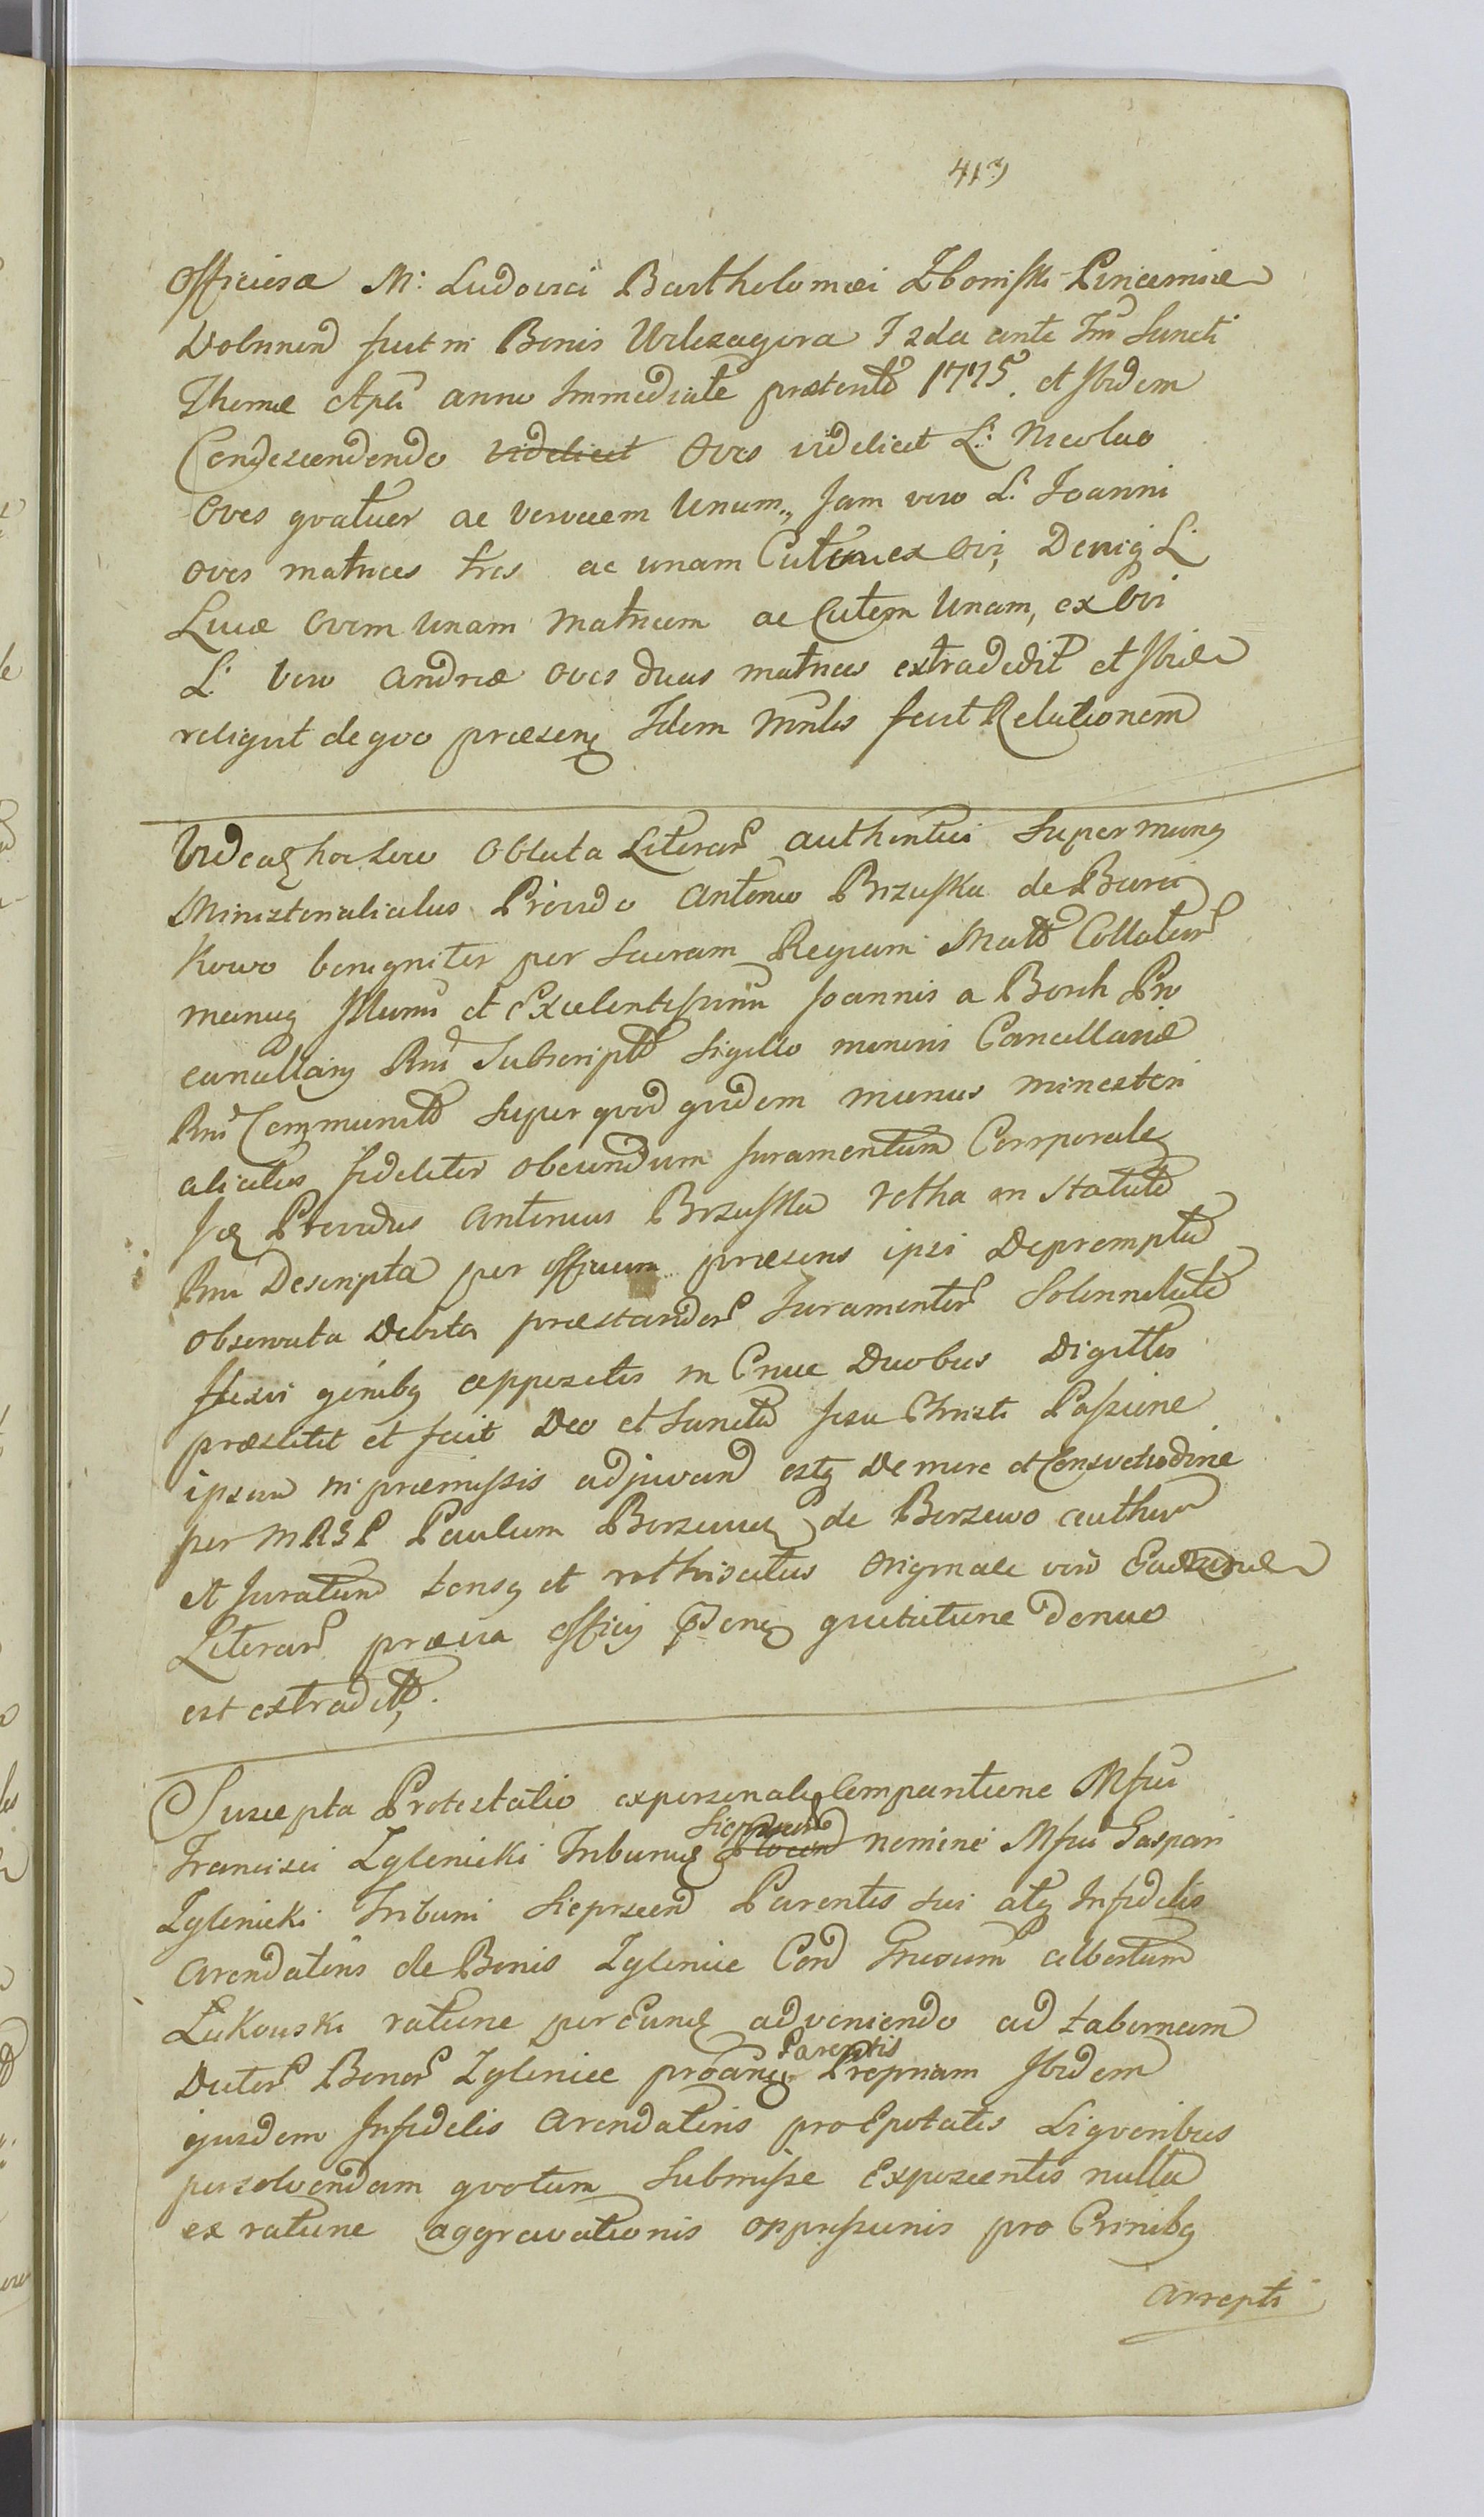 413
Officiose M: Ludovici Bartholomæi Zboinski Pincernæ
Dobrinen fuit in Bonis Wilczagora F 2da ante Fm Sancti
Thomæ Apli anno Immediate præterito 1775. et Ibidem
Condescendendo videlicet Oves videlicet L: Nicolao
Oves qvatuor ac vervecem Unum,, Jam vero L: Joanni
oves matrices tres ac unam Cutem ex Ovi, Deniq L:
Lucæ Ovem Unam matricem ac Cutem Unam, ex Ovi
L: vero Andreæ Oves duas matrices extradedit et Ibidem
reliqvit de qvo præsens Idem Mnlis fecit Relationem
Videatq hoc loco Oblata Literar authentici super munq
Ministerialiatus Provido Antonio Brzuska de
Kowo benigniter per Sacram Regiam Matte Collator
manuq Illmi et Excelentissimi Joannis a Borch Pro
cancellarij Rni Subscript Sigillo minoris Cancellariæ
Rni Communit super qvod qvidem munus ministeri
aliatus fideliter obeundum Juramentum Corporale
Idq Providus Antonius Brzuska rotha in Statuto
Rni Descripta per Officium præsens ipsi Deprompta
observata Debita præstandor Juramentor Solennitate
flexis genibq appositis in Cruce Duobus Digittis
præstitit et fecit Deo et Sancta Jesu Christi Passione
ipsum in præmissis adjuvand estq De more et Consvetudine
per MRSP Paulum de Borzewo author
et Juratum Originale vero
Literar prævia Officij qvietatione denuo
est extradit,
Suscepta Protestatio ex personali Comparitione Mfci
Francisci Zglenicki Tribunid Sieprcen Plocen nomine Mfci Gaspari
Zglenicki Tribuni Sieprcen Parentis sui atq Infidelis
Arendatoris de Bonis Zglenice Cora Gnrosum Albertum
Lukowski ratione per Eund adveniendo ad tabernam
Dictor Bonor Zglenice Parentis Propriam Ibidem
ejusdem Infidelis Arendatoris pro Epotatis Liqvoribus
persolvendam qvotam Submisse Exposcentis nulla
ex ratione aggravationis oppressionis pro Crinibq
Arrepti